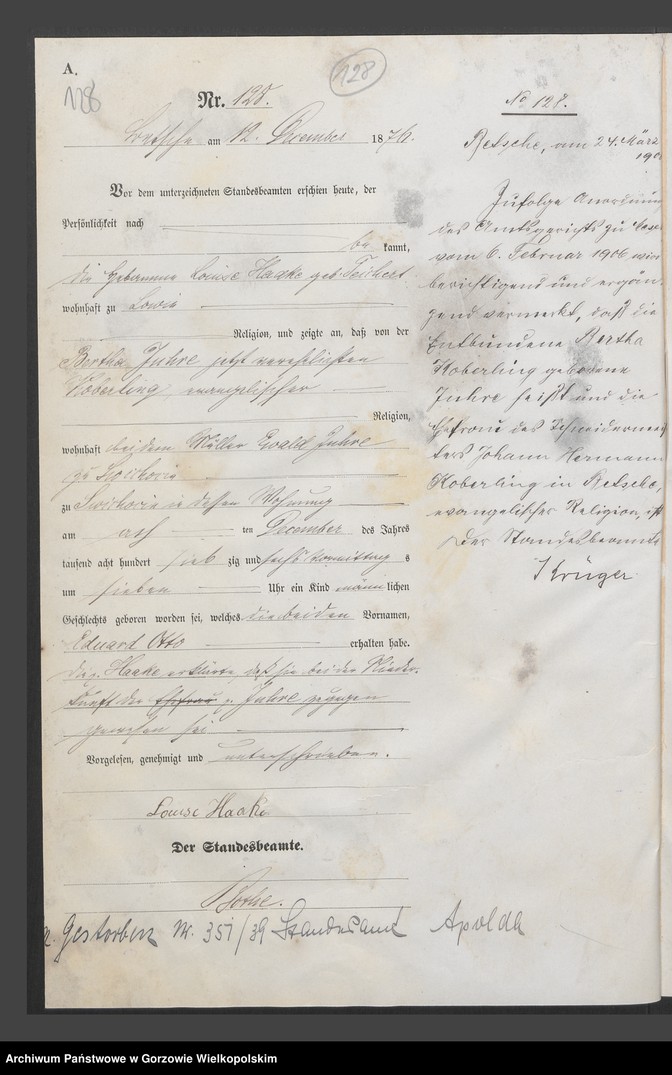 A.
128
128
Nr. 128.
Betsche am 12. December 1876.
Vor dem unterzeichneten Standesbeamten erschien heute, der
Persönlichkeit nach
be kannt,
die Hebamme Louise Haake geb. Teichert
wohnhaft zu Lowin
Religion, und zeigte an, daß von der
Bertha Juhre jetzt verehelichten
Koberling evangelischer
Religion,
wohnhaft bei dem Müller Ewald Juhre
zu
zu in dessen Wohnung
am acht ten December des Jahres
tausend acht hundert sieb zig und sechs Vormittag s
um sieben Uhr ein Kind männ lichen
Geschlechts geboren worden sei, welches die beiden Vornamen,
Eduard Otto erhalten habe.
Die p. Haake erklärte, daß sie bei der Nieder-
kunft der Ehefrau p. Juhre zugegen
gewesen sei
Vorgelesen, genehmigt und unterschrieben.
Louise Haake
Der Standesbeamte.
Gestorben Nr. 351/39 Standesamt Apolda
No 128.
Betsche, am 24. März
190
Zufolge Anordnun
des Amtsgerichts zu
vom 6. Februar 1906 wird
berichtigend und ergän-
zend vermerkt, daß die
Entbundene Bertha
Koberling geborene
Juhre heißt und die
Ehefrau des Schneidermeis
ters Johann Hermann
Koberling in Betsche,
evangelischer Religion, ist
Der Standesbeamte
Krüger
Archiwum Państwowe w Gorzowie Wielkopolskim